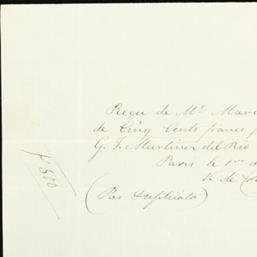 Reçu de Mr. Mar
de Cinq Cents francs
G. F. Martinez del Rio
Paris le 1er d
V. de
(Par duplicata)
f 500